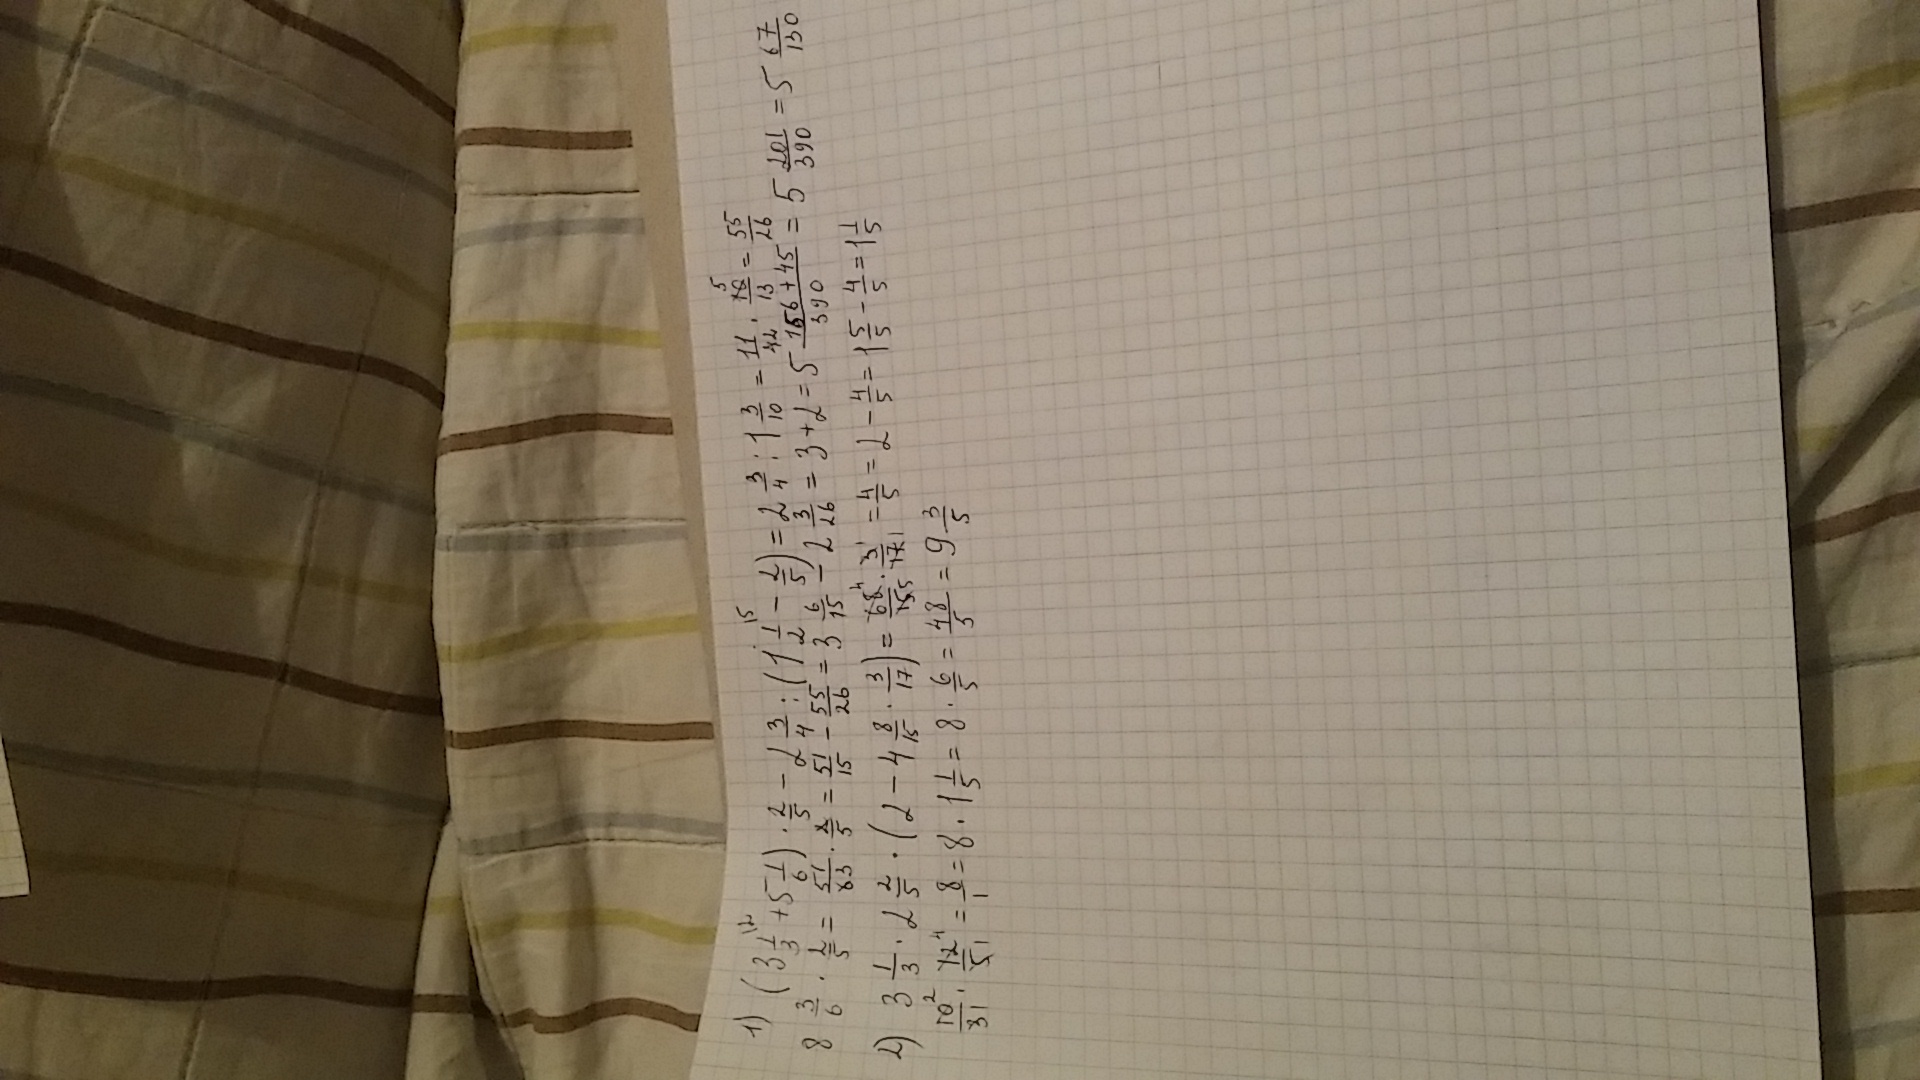 1) (3 1/3 + 5 1/6) · 2/5 - 2 3/4 : (1 1/2 - 1/5) = 2 3/4 : 1 3/10 = 11/4 · 10/13 = 55/26
8 3/6 · 2/5 = 51/63 · 2/5 = 51/15 - 55/26 = 3 6/15 - 2 3/26 = 3 + 2 = 5 156+45/390 = 5 201/390 = 5 67/130
2) 3 1/3 · 2 2/5 · (2 - 4 8/15 · 3/17) = 68/15 · 3/17 = 4/5 = 2 - 4/5 = 1 5/5 - 4/5 = 1 1/5
10/3 · 12/5 = 8/1 = 8 · 1 1/5 = 8 · 6/5 = 48/5 = 9 3/5